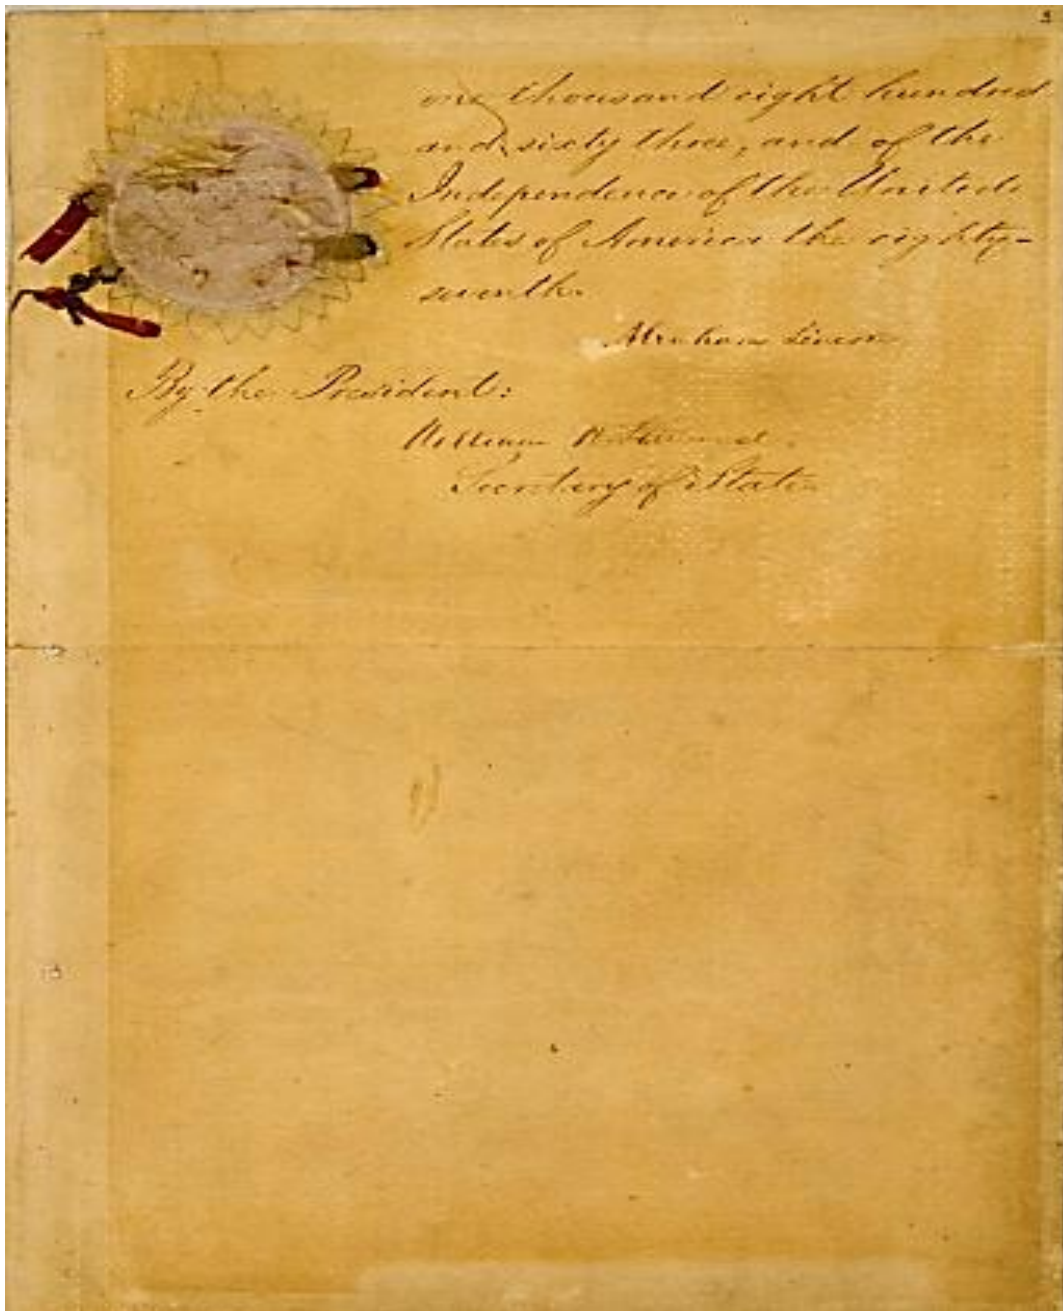 5
one thousand eight hundred
and sixty three, and of the
Independence of the United
States of America the eighty-
seventh.
Abraham Lincoln
By the President:
William H. Seward,
Secretary of State